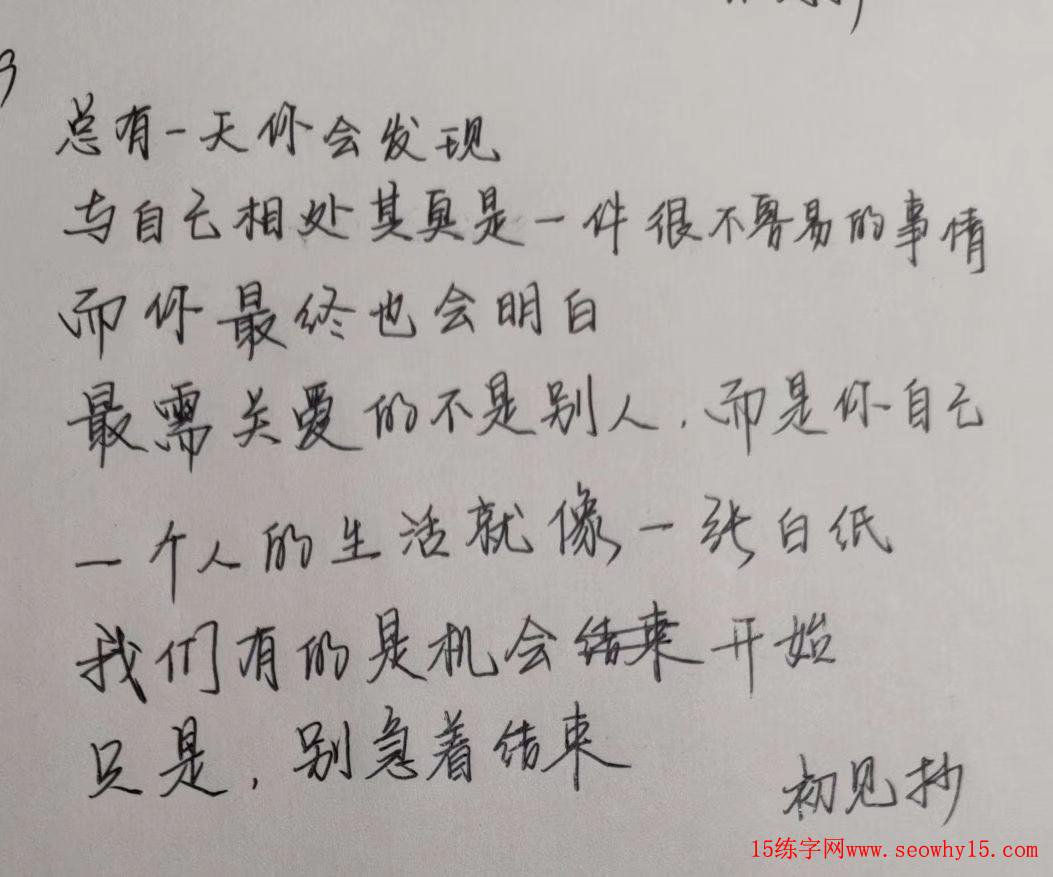 总有一天你会发现
与自己相处其真是一件很不容易的事情
而你最终也会明白
最需关爱的不是别人，而是你自己
一个人的生活就像一张白纸
我们有的是机会结束开始
只是，别急着结束
初见抄
15练字网www.seowhy15.com